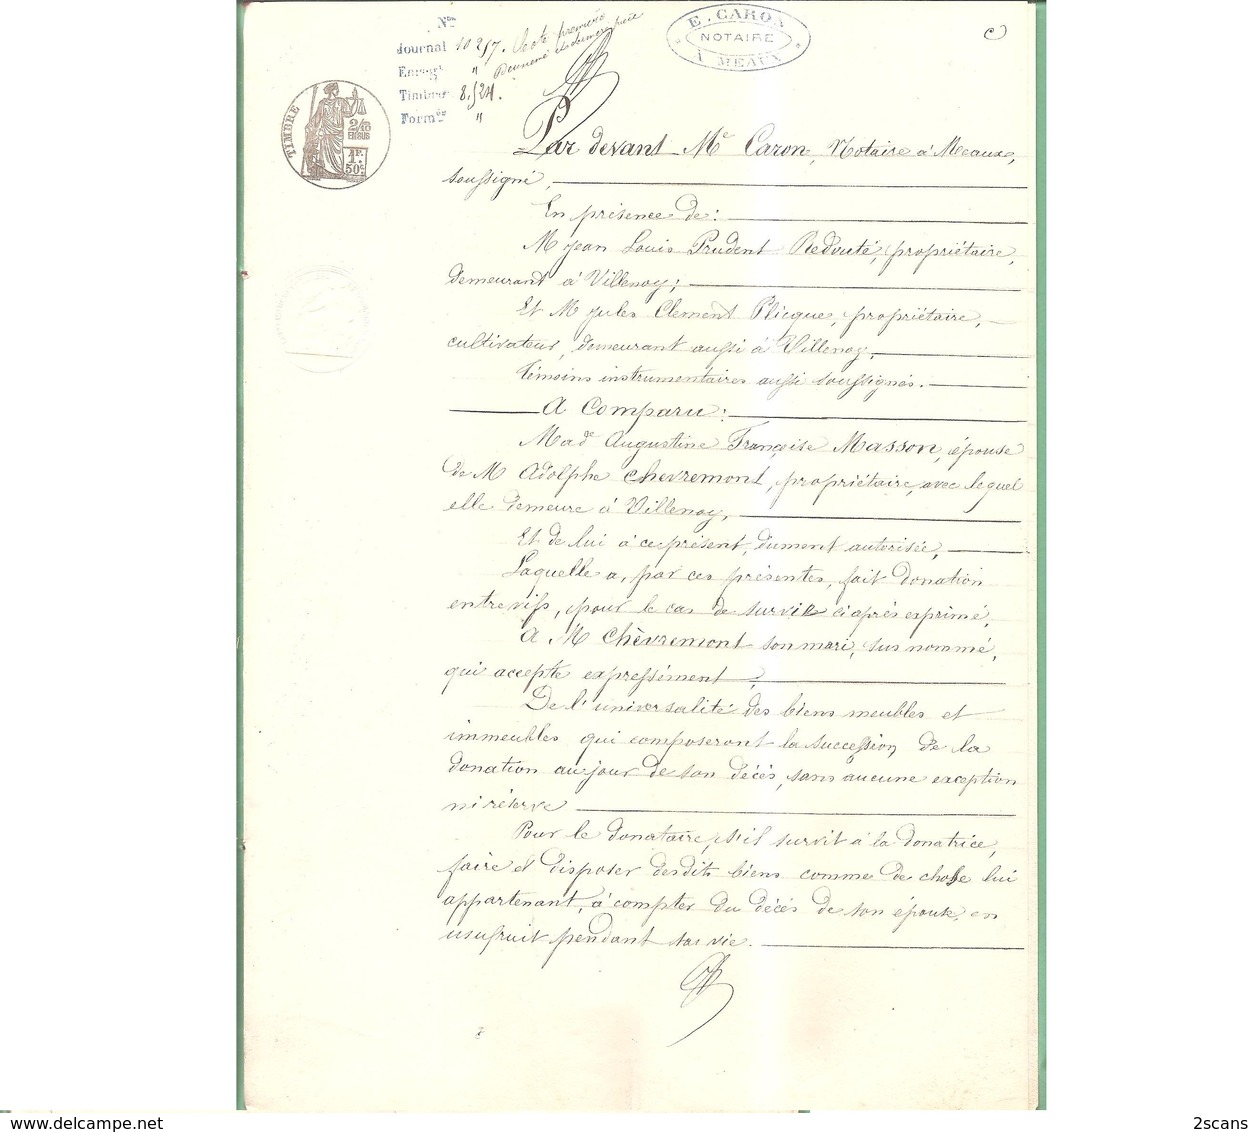 E. CARON
NOTAIRE
A MEAUX
Nos
Journal 10257.
Enregt "
Timbres 8.
Formes "
TIMBRE
2/10
EN SUS
1F.
50c
Par devant Me Caron, Notaire à Meaux,
soussigné,
En présence de:
M Jean Louis Prudent Redouté, propriétaire,
demeurant à Villenoy;
Et M Jules Clement Plicque, propriétaire,
cultivateur, demeurant aussi à Villenoy,
témoins instrumentaires aussi soussignés.
A Comparu:
Made Augustine Françoise Masson, épouse
de M Adolphe Chevremont, propriétaire, avec lequel
elle demeure à Villenoy,
Et de lui à ce présent, dument autorisée,
Laquelle a, par ces présentes, fait donation
entrevifs, pour le cas de survie ci après exprimé,
A M Chèvremont son mari, sus nommé,
qui accepte expressément,
De l'universalité des biens meubles et
immeubles qui composeront la succession de la
donation au jour de son décès, sans aucune exception
ni réserve
Pour le donataire, s'il survit à la donatrice,
faire et disposer desdits biens comme de chose lui
appartenant, à compter du décès de son épouse, en
usufruit pendant sa vie.
2scans